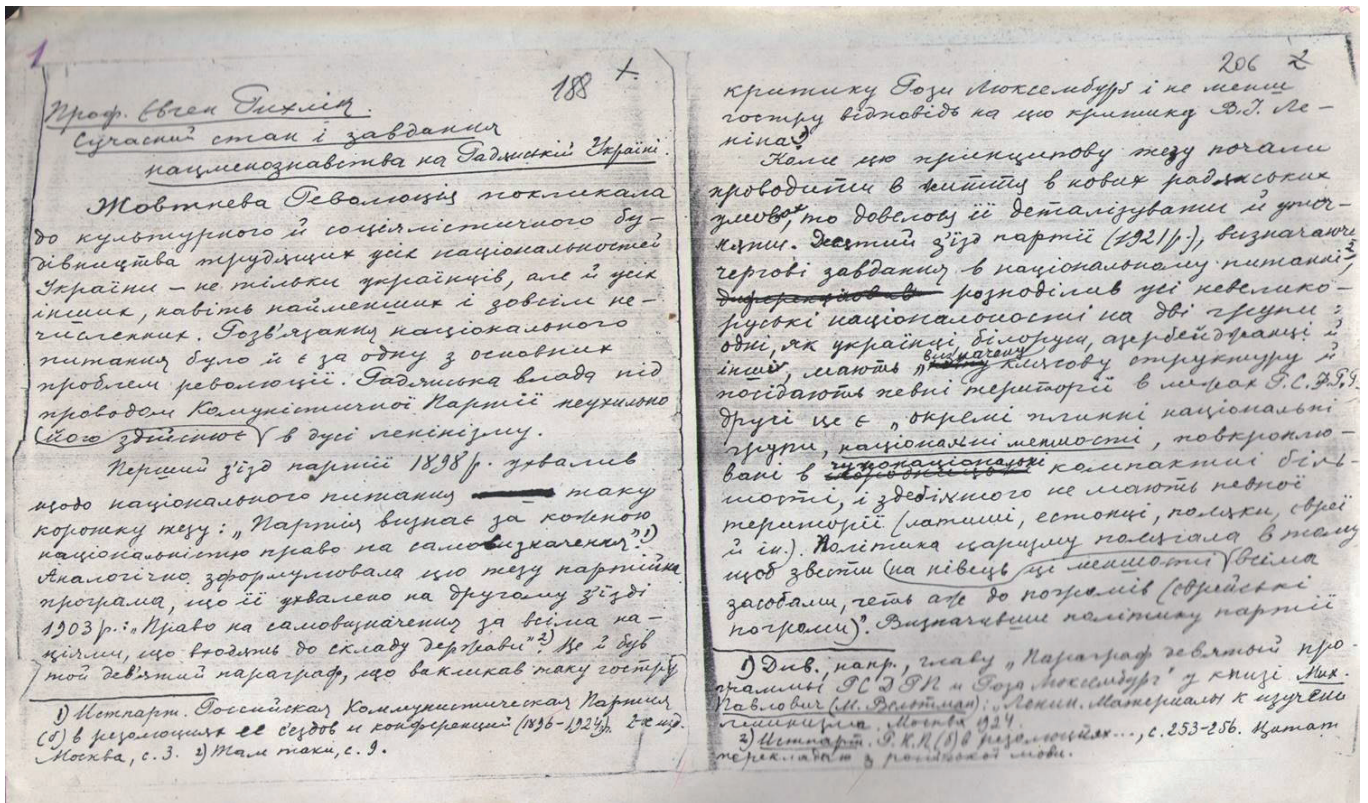 1
188 X
Проф. Євген Рихлік.
Сучасний стан і завдання
нацменознавства на Радянській Україні.
Жовтнева Революція покликала
до культурного й соціялістичного бу-
дівництва трудящих усіх національностей
України – не тільки українців, але й усіх
інших, навіть найменших і зовсім не-
численних. Розв'язання національного
питання було й є за одну з основних
проблем революції. Радянська влада під
проводом Комуністичної Партії неухильно
його здійснює в дусі ленінізму.
Перший з'їзд партії 1898 р. ухвалив
щодо національного питання таку
коротку тезу: „Партія визнає за кожною
національністю право на самовизначення".1)
Аналогічно зформулювала цю тезу партійна
програма, що її ухвалено на другому з'їзді
1903 р.: „Право на самовизначення за всіма на-
ціями, що входять до складу держави".2) Це й був
той дев'ятий параграф, що викликав таку гостру
1) Истпарт. Российская Коммунистическая Партия
(б) в резолюциях ее с'ездов и конференций (1896–1924 г.). 2-е изд.
Москва, с. 3. 2) Там таки, с. 9.
206 2
критику Рози Люксембург і не менш
гостру відповідь на цю критику В. І. Ле-
ніна.1)
Коли цю принципову тезу почали
проводити в життя в нових радянських
умовах, то довелось її деталізувати й уточ-
няти. Десятий з'їзд партії (1921 р.), визначаючи
чергові завдання в національному питанні,2)
розподілив усі невелико-
руські національності на дві групи:
одні, як українці, білоруси, азербейджанці й
інші, мають „визначену клясову структуру й
посідають певні території в межах Р.С.Ф.Р.Р.
другі це є „окремі плинні національні
групи, національні меншості, повкроплю-
вані в чужонаціональні компактні біль-
шості, і здебільшого не мають певної
території (латиші, естонці, поляки, євреї
й ін.). Політика царизму полягала в тому
щоб звести на нівець ці меншості всіма
засобами, геть аж до погромів (єврейські
погроми)". Визначивши політику партії
1) Див., напр., главу „Параграф девятый про-
граммы РСДРП и Роза Люксембург" у книзі Мих.
Павлович (М. Вельтман): „Ленин. Материалы к изучению
ленинизма. Москва 1924.
2) Истпарт. Р.К.П (б) в резолюциях..., с. 253-256. Цитат
перекладат з російської мови.